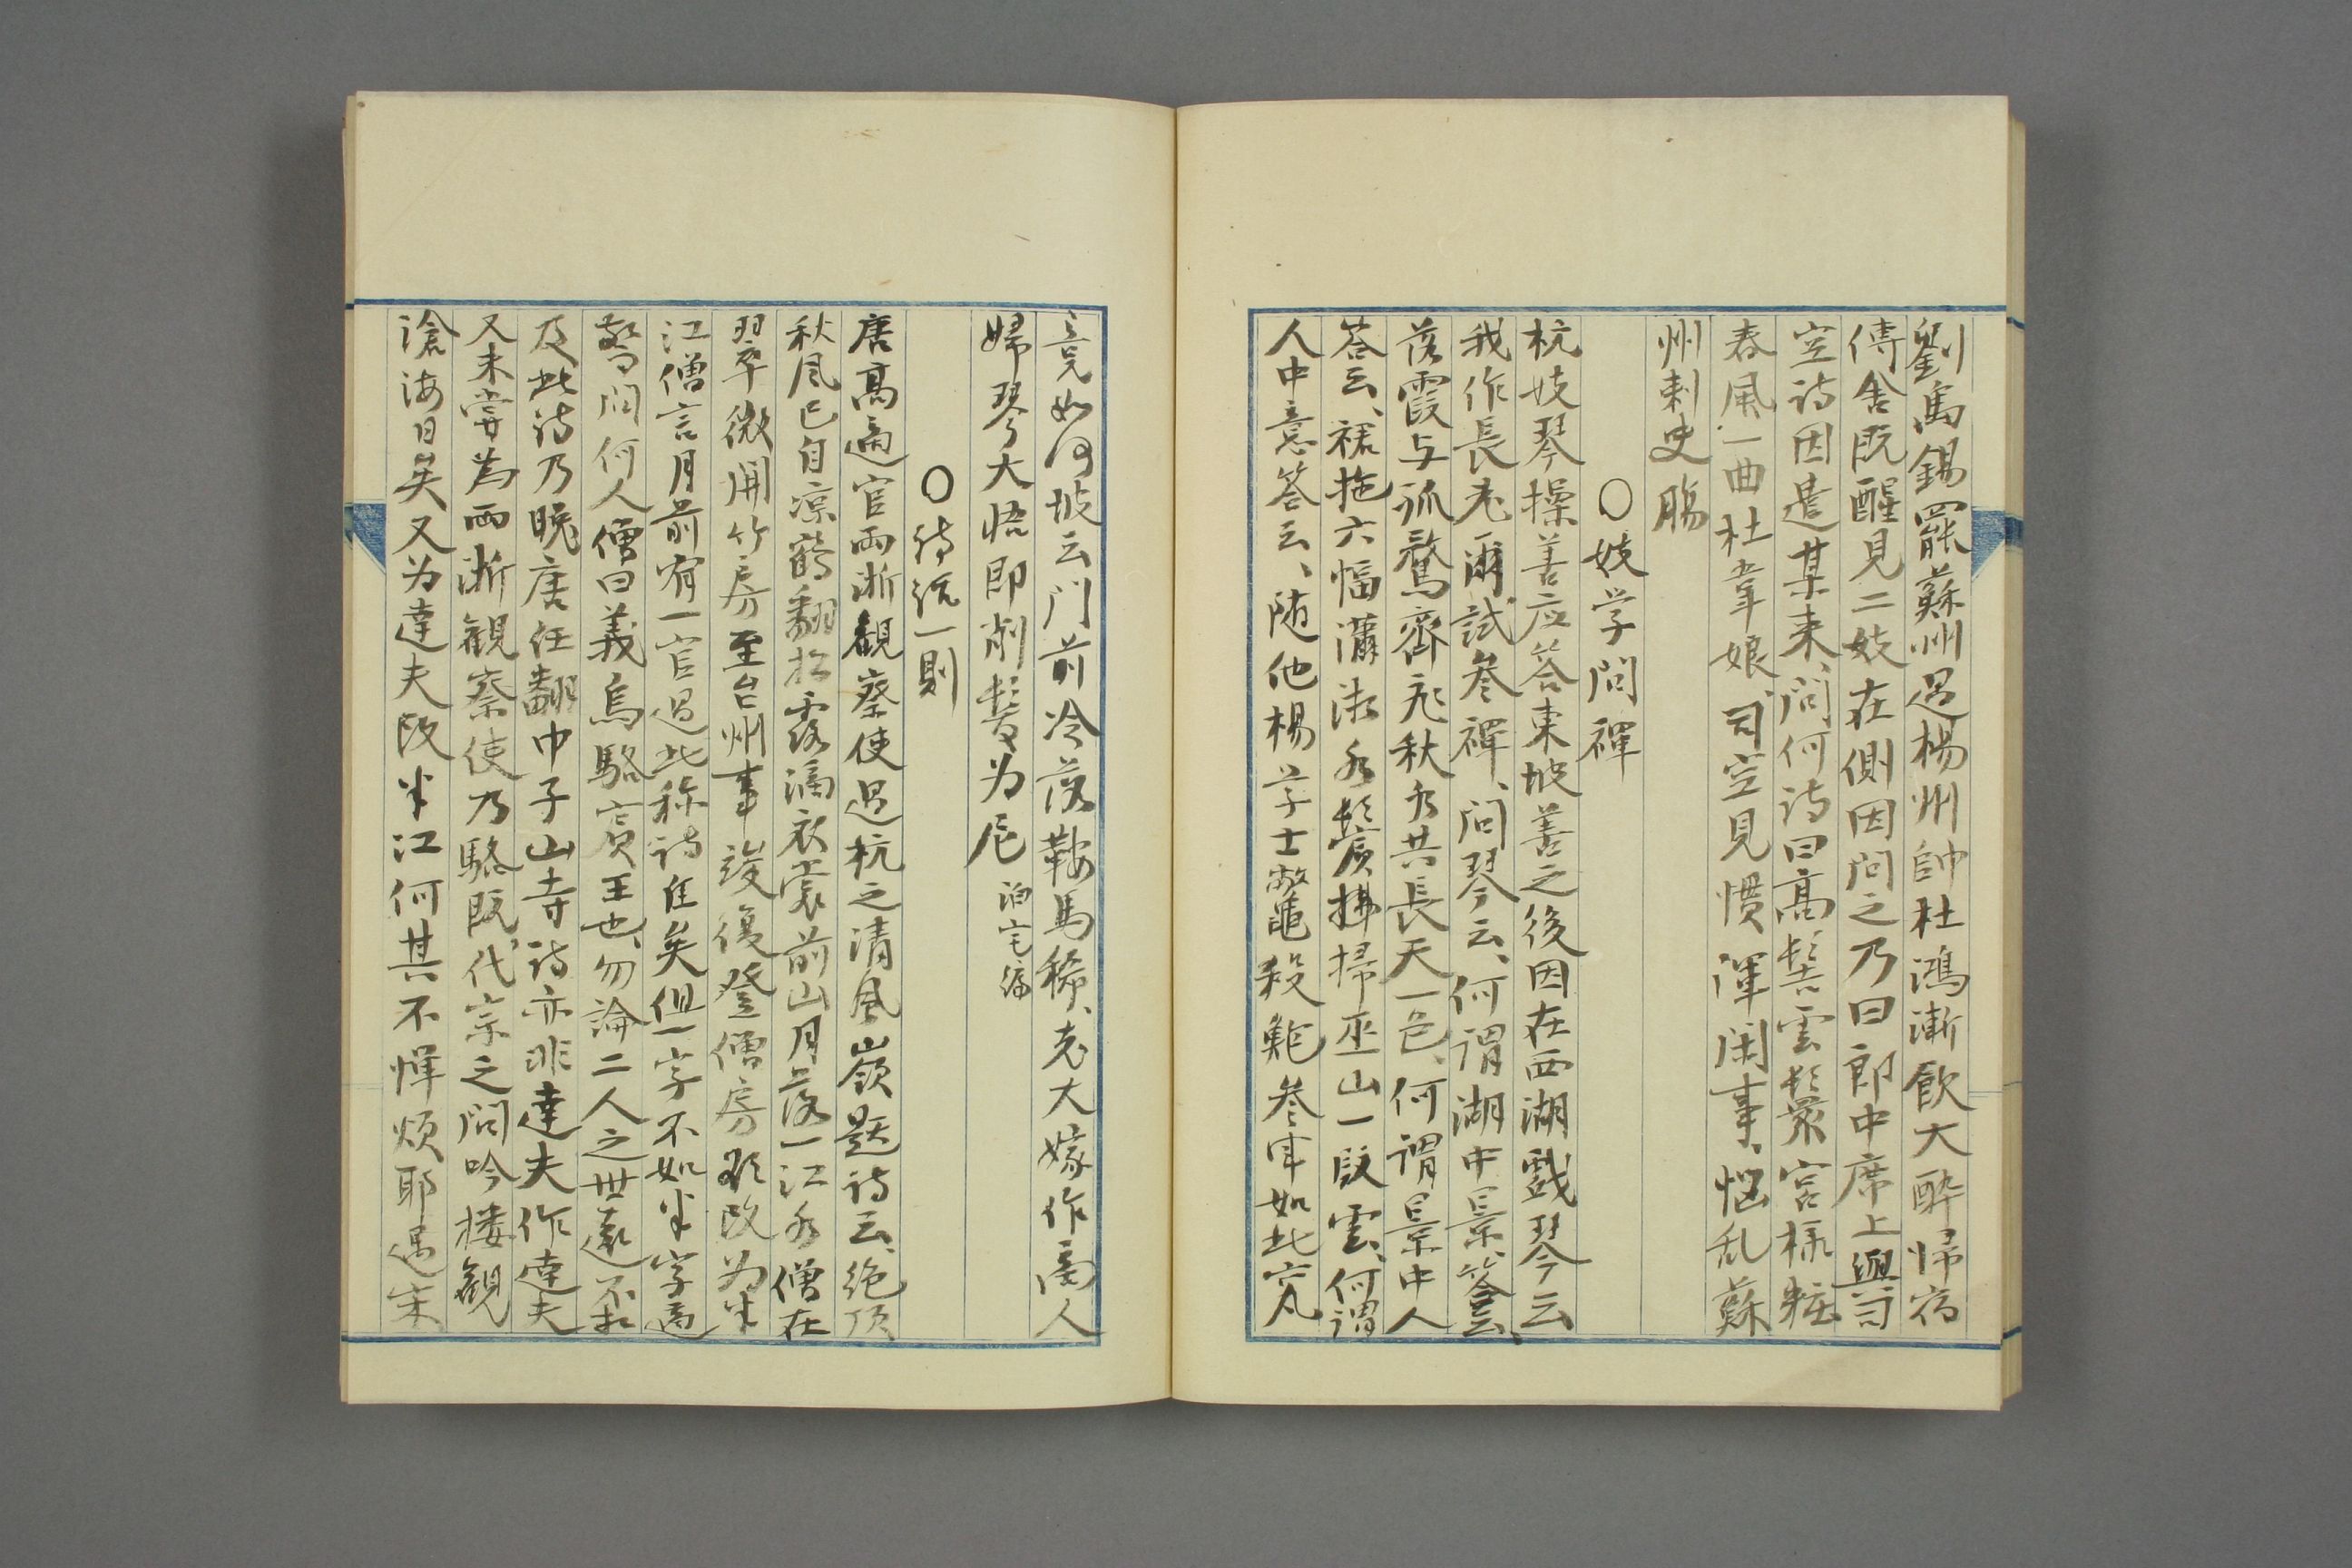 劉禹錫罷蘇州過楊州帥杜鴻漸飲大酔帰宿
傳舍既醒見二妓在側因问之乃曰郎中席上與司
空诗因遣某来、问何诗曰髙髻雲鬟宮様粧
春風一曲杜韋娘、司空見慣渾闲事、悩乱蘇
州刺史膓
〇妓学问禪
杭妓琴操善应答東坡善之後因在西湖戲琴云
我作長老爾試参禪、问琴云、何謂湖中景、答云、
落霞与孤鶩齊飛秋水共長天一色、何謂景中人
荅云、裙拖六幅瀟湘水鬢拂掃巫山一段雲、何謂
人中意答云、随他楊学士鱉殺鮑参軍如此究
竟如何坡云门前冷落鞍馬稀、老大嫁作商人
婦琴大悟即削髮为尼 泊宅编
〇诗话一則
唐髙適官両浙観察使过杭之清風嶺題诗云、绝顶
秋风已自凉鶴翻松露滴衣裳前山月落一江水僧在
翠微開竹房至台州事竣復登僧房欲改为半
江僧言月前有一官过此称诗佳矣但一字不如半字適
驚问何人僧曰義烏駱賓王也、勿論二人之世遠不相
及此诗乃晚唐任翻巾子山寺诗亦非達夫作達夫
又未嘗為両浙観察使乃駱既代宗之问吟楼観
滄海日矣又为達夫改半江何其不惮烦耶遇宋